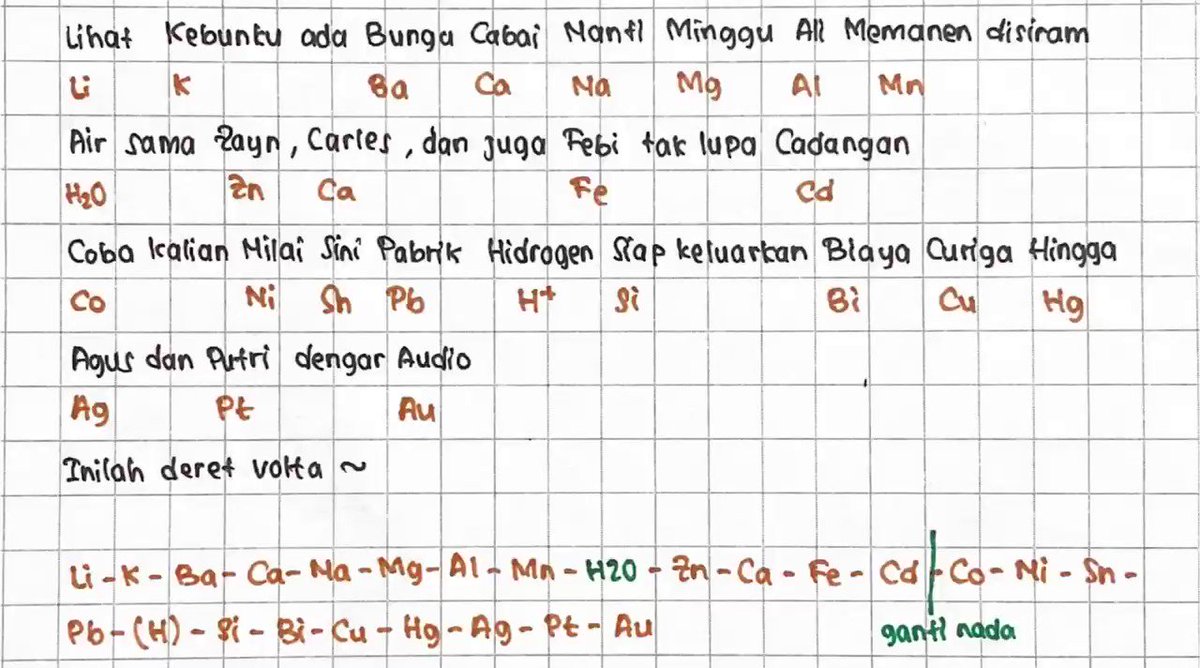 Lihat Kebunku ada Bunga Cabai Nanti Minggu Ali Memanen disiram
Li K Ba Ca Na Mg Al Mn
Air sama Zayn, Carles, dan juga Febi tak lupa Cadangan
H₂O Zn Ca Fe Cd
Coba kalian Nilai Sini Pabrik Hidrogen Siap keluarkan Biaya Curiga Hingga
Co Ni Sn Pb H+ Si Bi Cu Hg
Agus dan Putri dengar Audio
Ag Pt Au
Inilah deret volta ~
Li - K - Ba - Ca - Na - Mg - Al - Mn - H2O - Zn - Ca - Fe - Cd - Co - Ni - Sn -
Pb - (H) - Si - Bi - Cu - Hg - Ag - Pt - Au
ganti nada